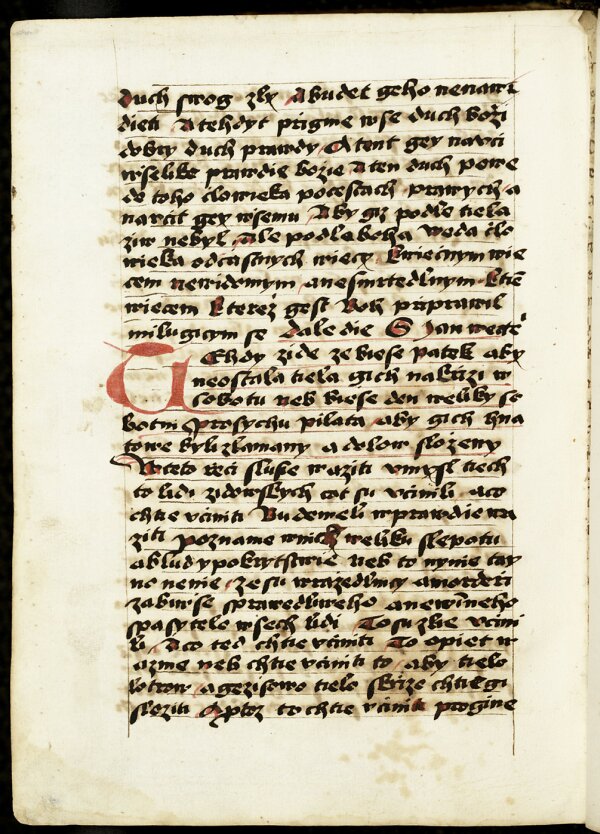 duch swog zly A budet geho nenawi
dieti A tehdyt prigme wse duch bozi
dobry duch prawdy A tent gey nauci
wselike prawdie bozie A ten duch powe
de toho clowieka po cestach prawych a
naucit gey wsemu Aby giz podle tiela
ziw nebyl Ale podle boha weda clo
wieka od czasnych wiecy k wiecnym wie
cem newidomym a nesmrtedlnym k tiem
wiecem kterez gest Boh priprawil
milugicym se dale die S Jan w cte
Tehdy zide ze biese patek aby
neostala tiela gich na krizi w
sobotu neb biese den weliky so
botni Prosychu pilata aby gich hna
towe byli zlamany a dolow slozeny
W teto reci sluse wraziti vmysl tiech
to lidi zidowskych cot su vcinili a co
chtie vciniti Budemeli w prawdie wa
ziti pozname w nich weliku slepotu
a blud y pokrytstwie neb to nynie tay
no nenie ze su wrazedlnicy a morderi
zabiwse sprawedliweho a newinneho
spasytele wsech lidi To su zlie vcini
li A co ted chtie vciniti To opiet w
azme neb chtie vciniti to aby tielo
lotrow a gezisowo tielo s krize chtie gi
sloziti A protoz to chtie vciniti prvgine